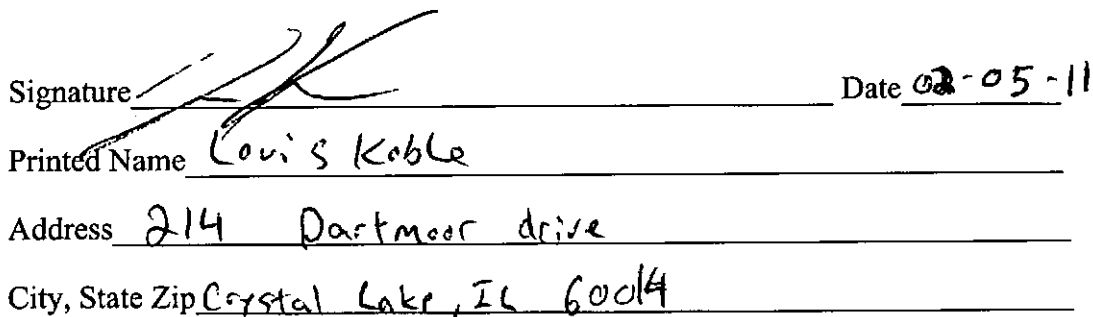 Signature Date 02-05-11
Printed Name Louis Koble
Address 214 Dartmoor drive
City, State Zip Crystal Lake, IL 60014